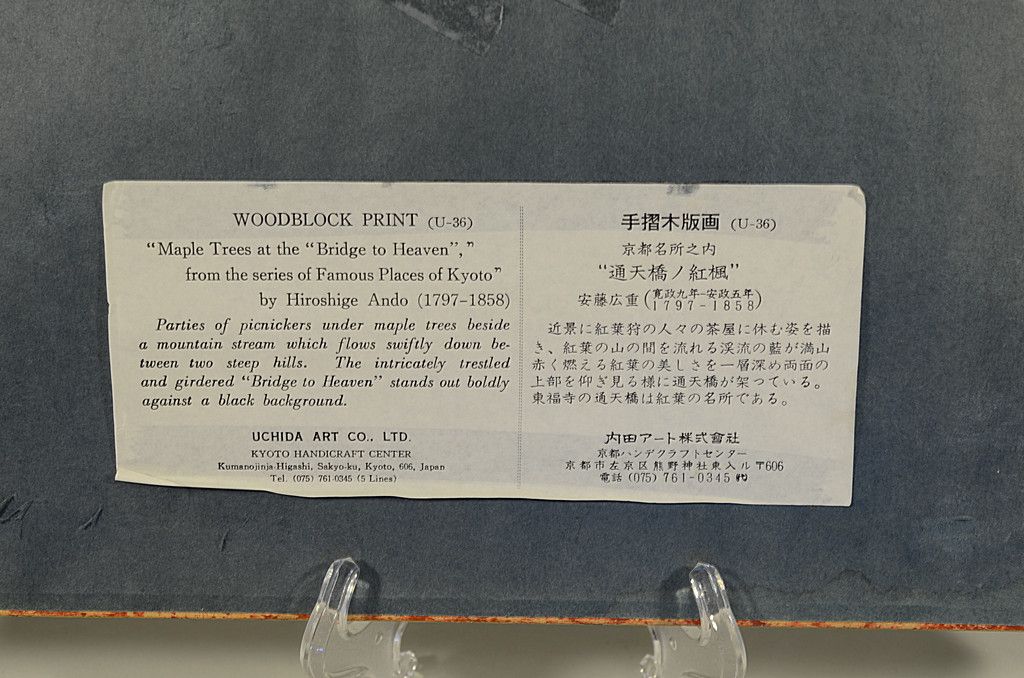 WOODBLOCK PRINT (U-36)
“Maple Trees at the “Bridge to Heaven”,”
from the series of Famous Places of Kyoto”
by Hiroshige Ando (1797–1858)
Parties of picnickers under maple trees beside
a mountain stream which flows swiftly down be-
tween two steep hills. The intricately trestled
and girdered “Bridge to Heaven” stands out boldly
against a black background.
UCHIDA ART CO., LTD.
KYOTO HANDICRAFT CENTER
Kumanojinja-Higashi, Sakyo-ku, Kyoto, 606, Japan
Tel. (075) 761-0345 (5 Lines)
手摺木版画 (U-36)
京都名所之内
“通天橋ノ紅楓”
安藤広重(寛政九年–安政五年
1797-1858)
近景に紅葉狩の人々の茶屋に休む姿を描
き、紅葉の山の間を流れる渓流の藍が満山
赤く燃える紅葉の美しさを一層深め両面の
上部を仰ぎ見る様に通天橋が架つている。
東福寺の通天橋は紅葉の名所である。
内田アート株式會社
京都ハンデクラフトセンター
京都市左京区熊野神社東入ル〒606
電話(075)761-0345㈹